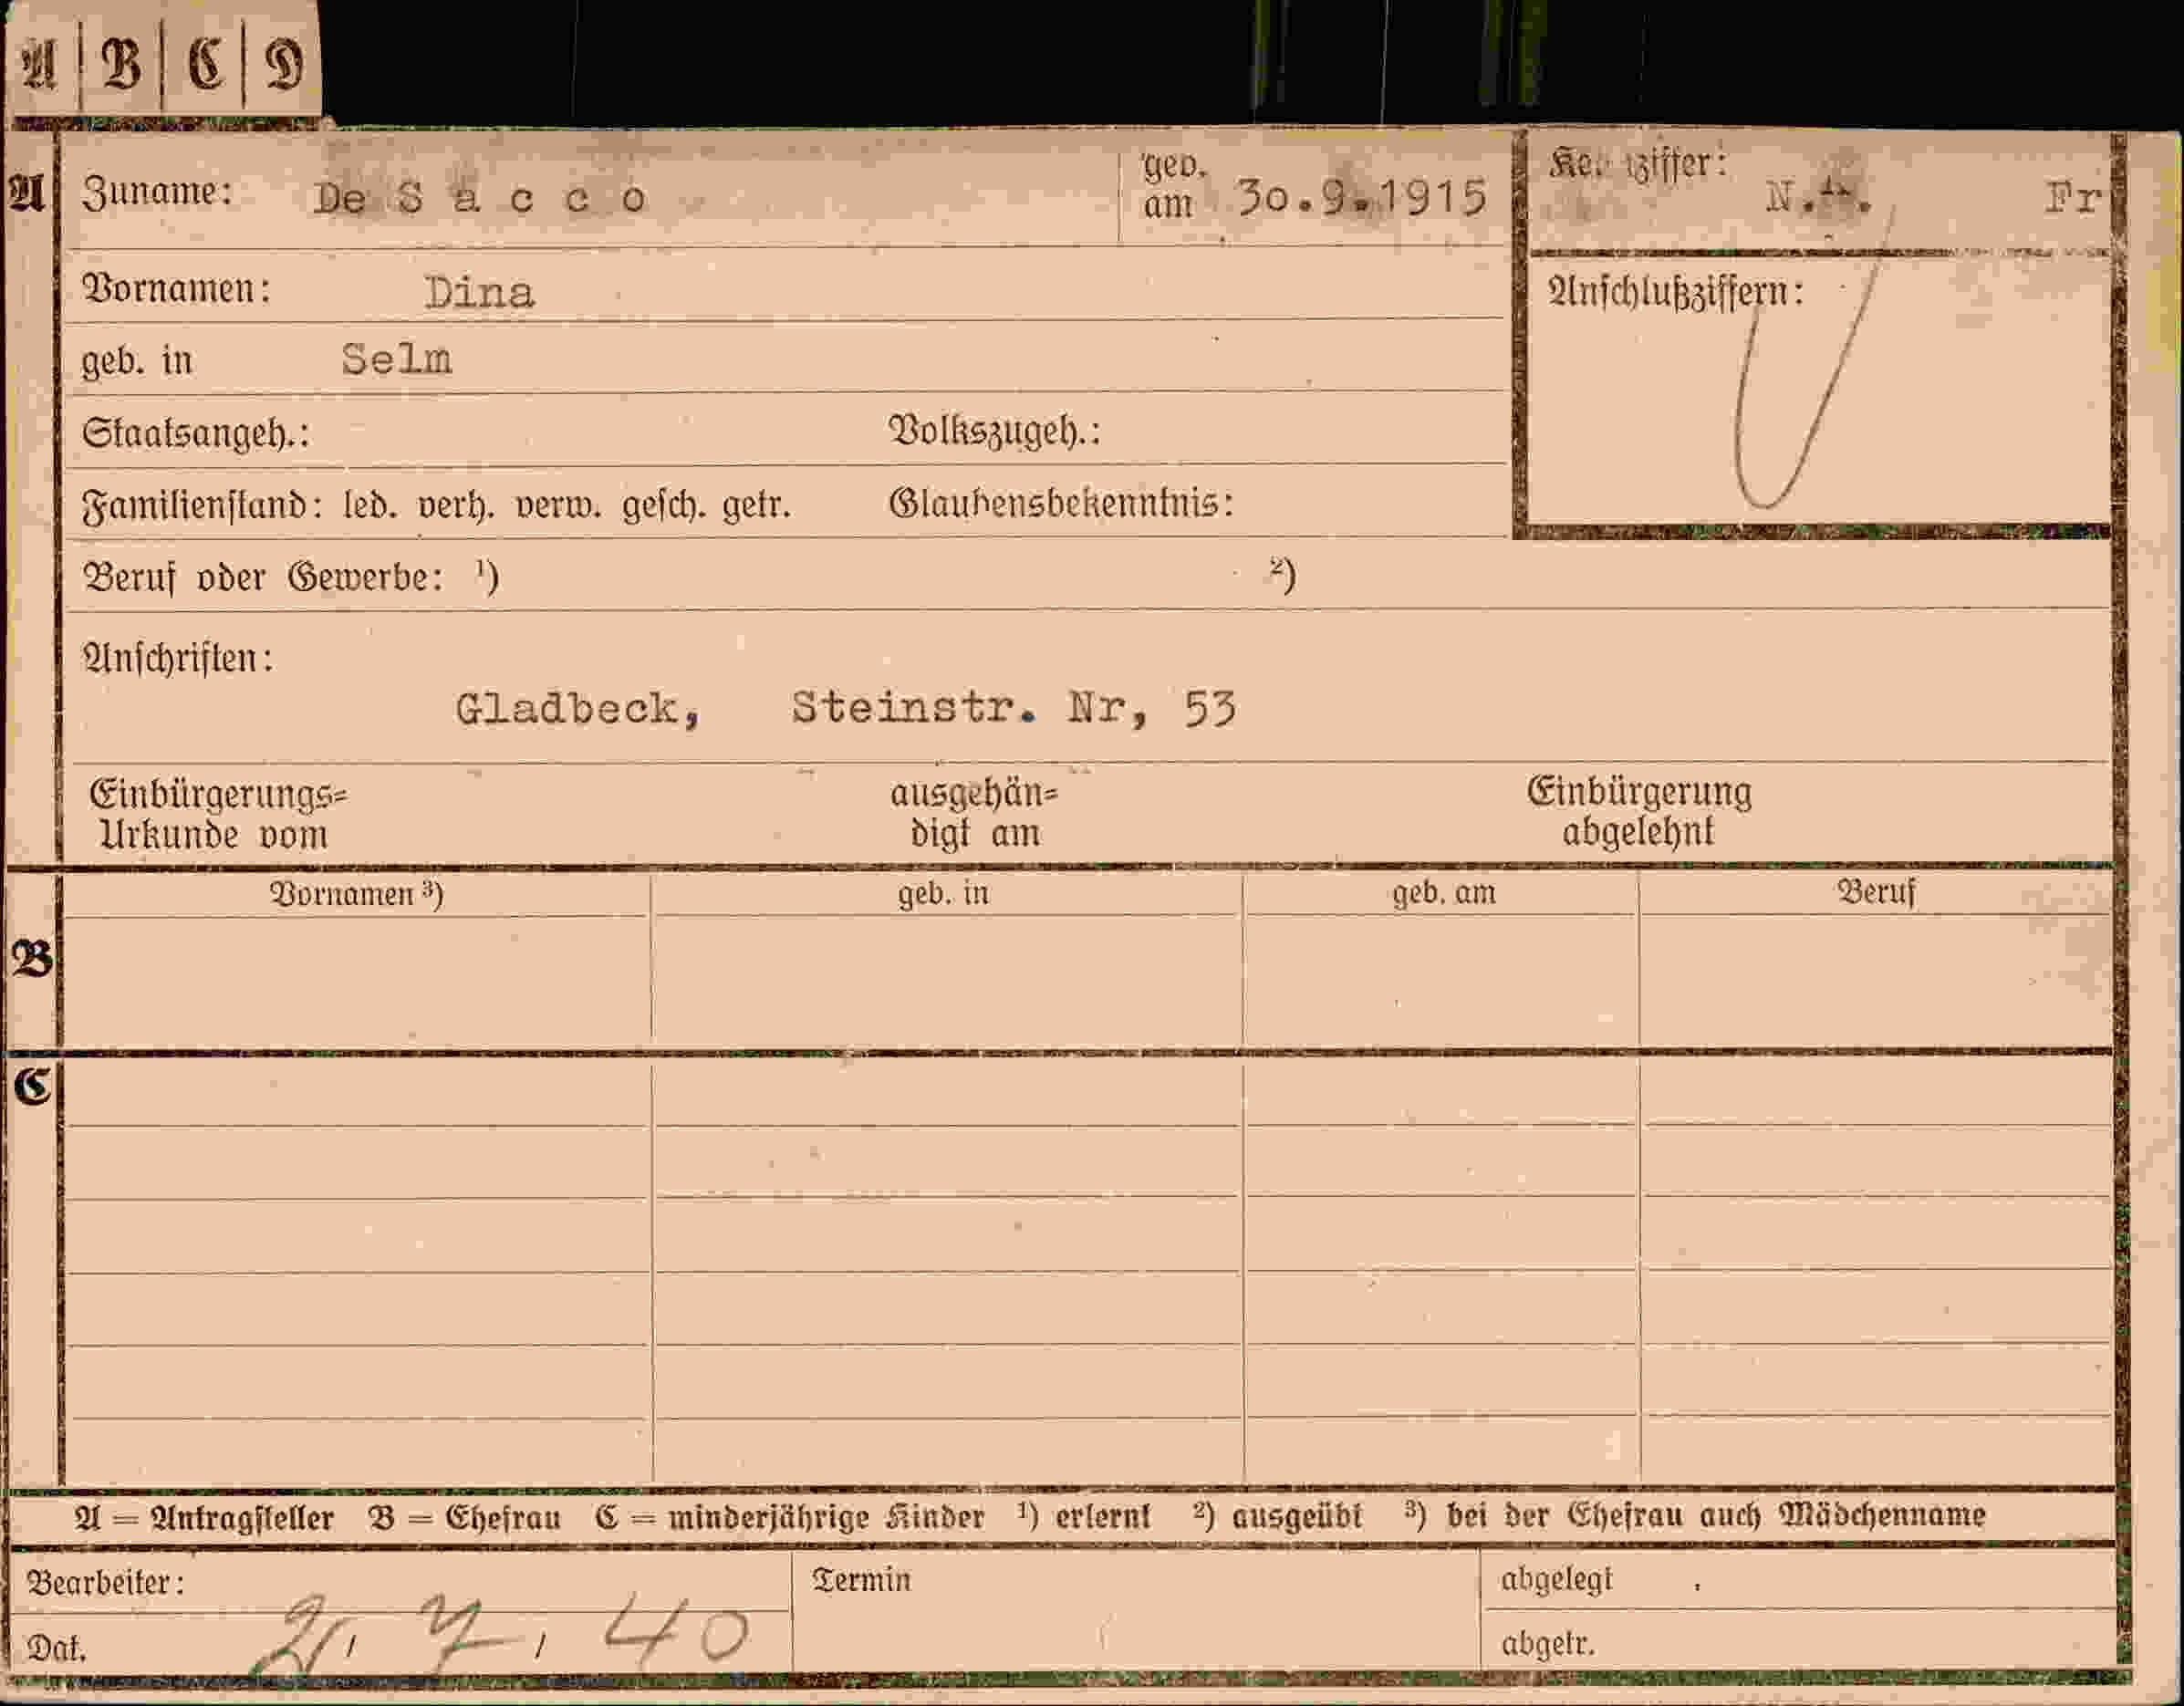 A | B | C | D
A Zuname: De S a c c o geb. am 30.9.1915 Kennziffer: N.A. Fr
Vornamen: Dina
Anschlußziffern:
geb. in Selm
Staatsangeh.: Volkszugeh.:
Familienstand: led. verh. verw. gesch. getr. Glaubensbekenntnis:
Beruf oder Gewerbe: ¹) ²)
Anschriften:
Gladbeck, Steinstr. Nr, 53
Einbürgerungs= ausgehän= Einbürgerung
Urkunde vom digt am abgelehnt
Vornamen ³) geb. in geb. am Beruf
B
C
A = Antragsteller B = Ehefrau C = minderjährige Kinder ¹) erlernt ²) ausgeübt ³) bei der Ehefrau auch Mädchenname
Bearbeiter: Termin abgelegt
Dat. 7. 40 abgetr.